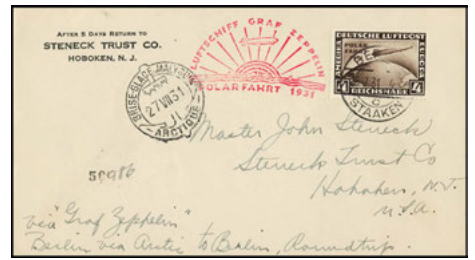 AFTER 5 DAYS RETURN TO
STENECK TRUST CO.
HOBOKEN, N. J.
LUFTSCHIFF GRAF ZEPPELIN
POLARFAHRT 1931
DEUTSCHE LUFTPOST
POLAR
FAHRT
AMERIKA
EUROPA
4 REICHSMARK 4
STAAKEN
BRISE-GLACE
27 VII 31
ARCTIQUE
Master John Steneck
Steneck Trust Co
Hoboken, N.J.
U.S.A.
via "Graf Zeppelin"
Berlin via Arctic to Berlin, Roundtrip.